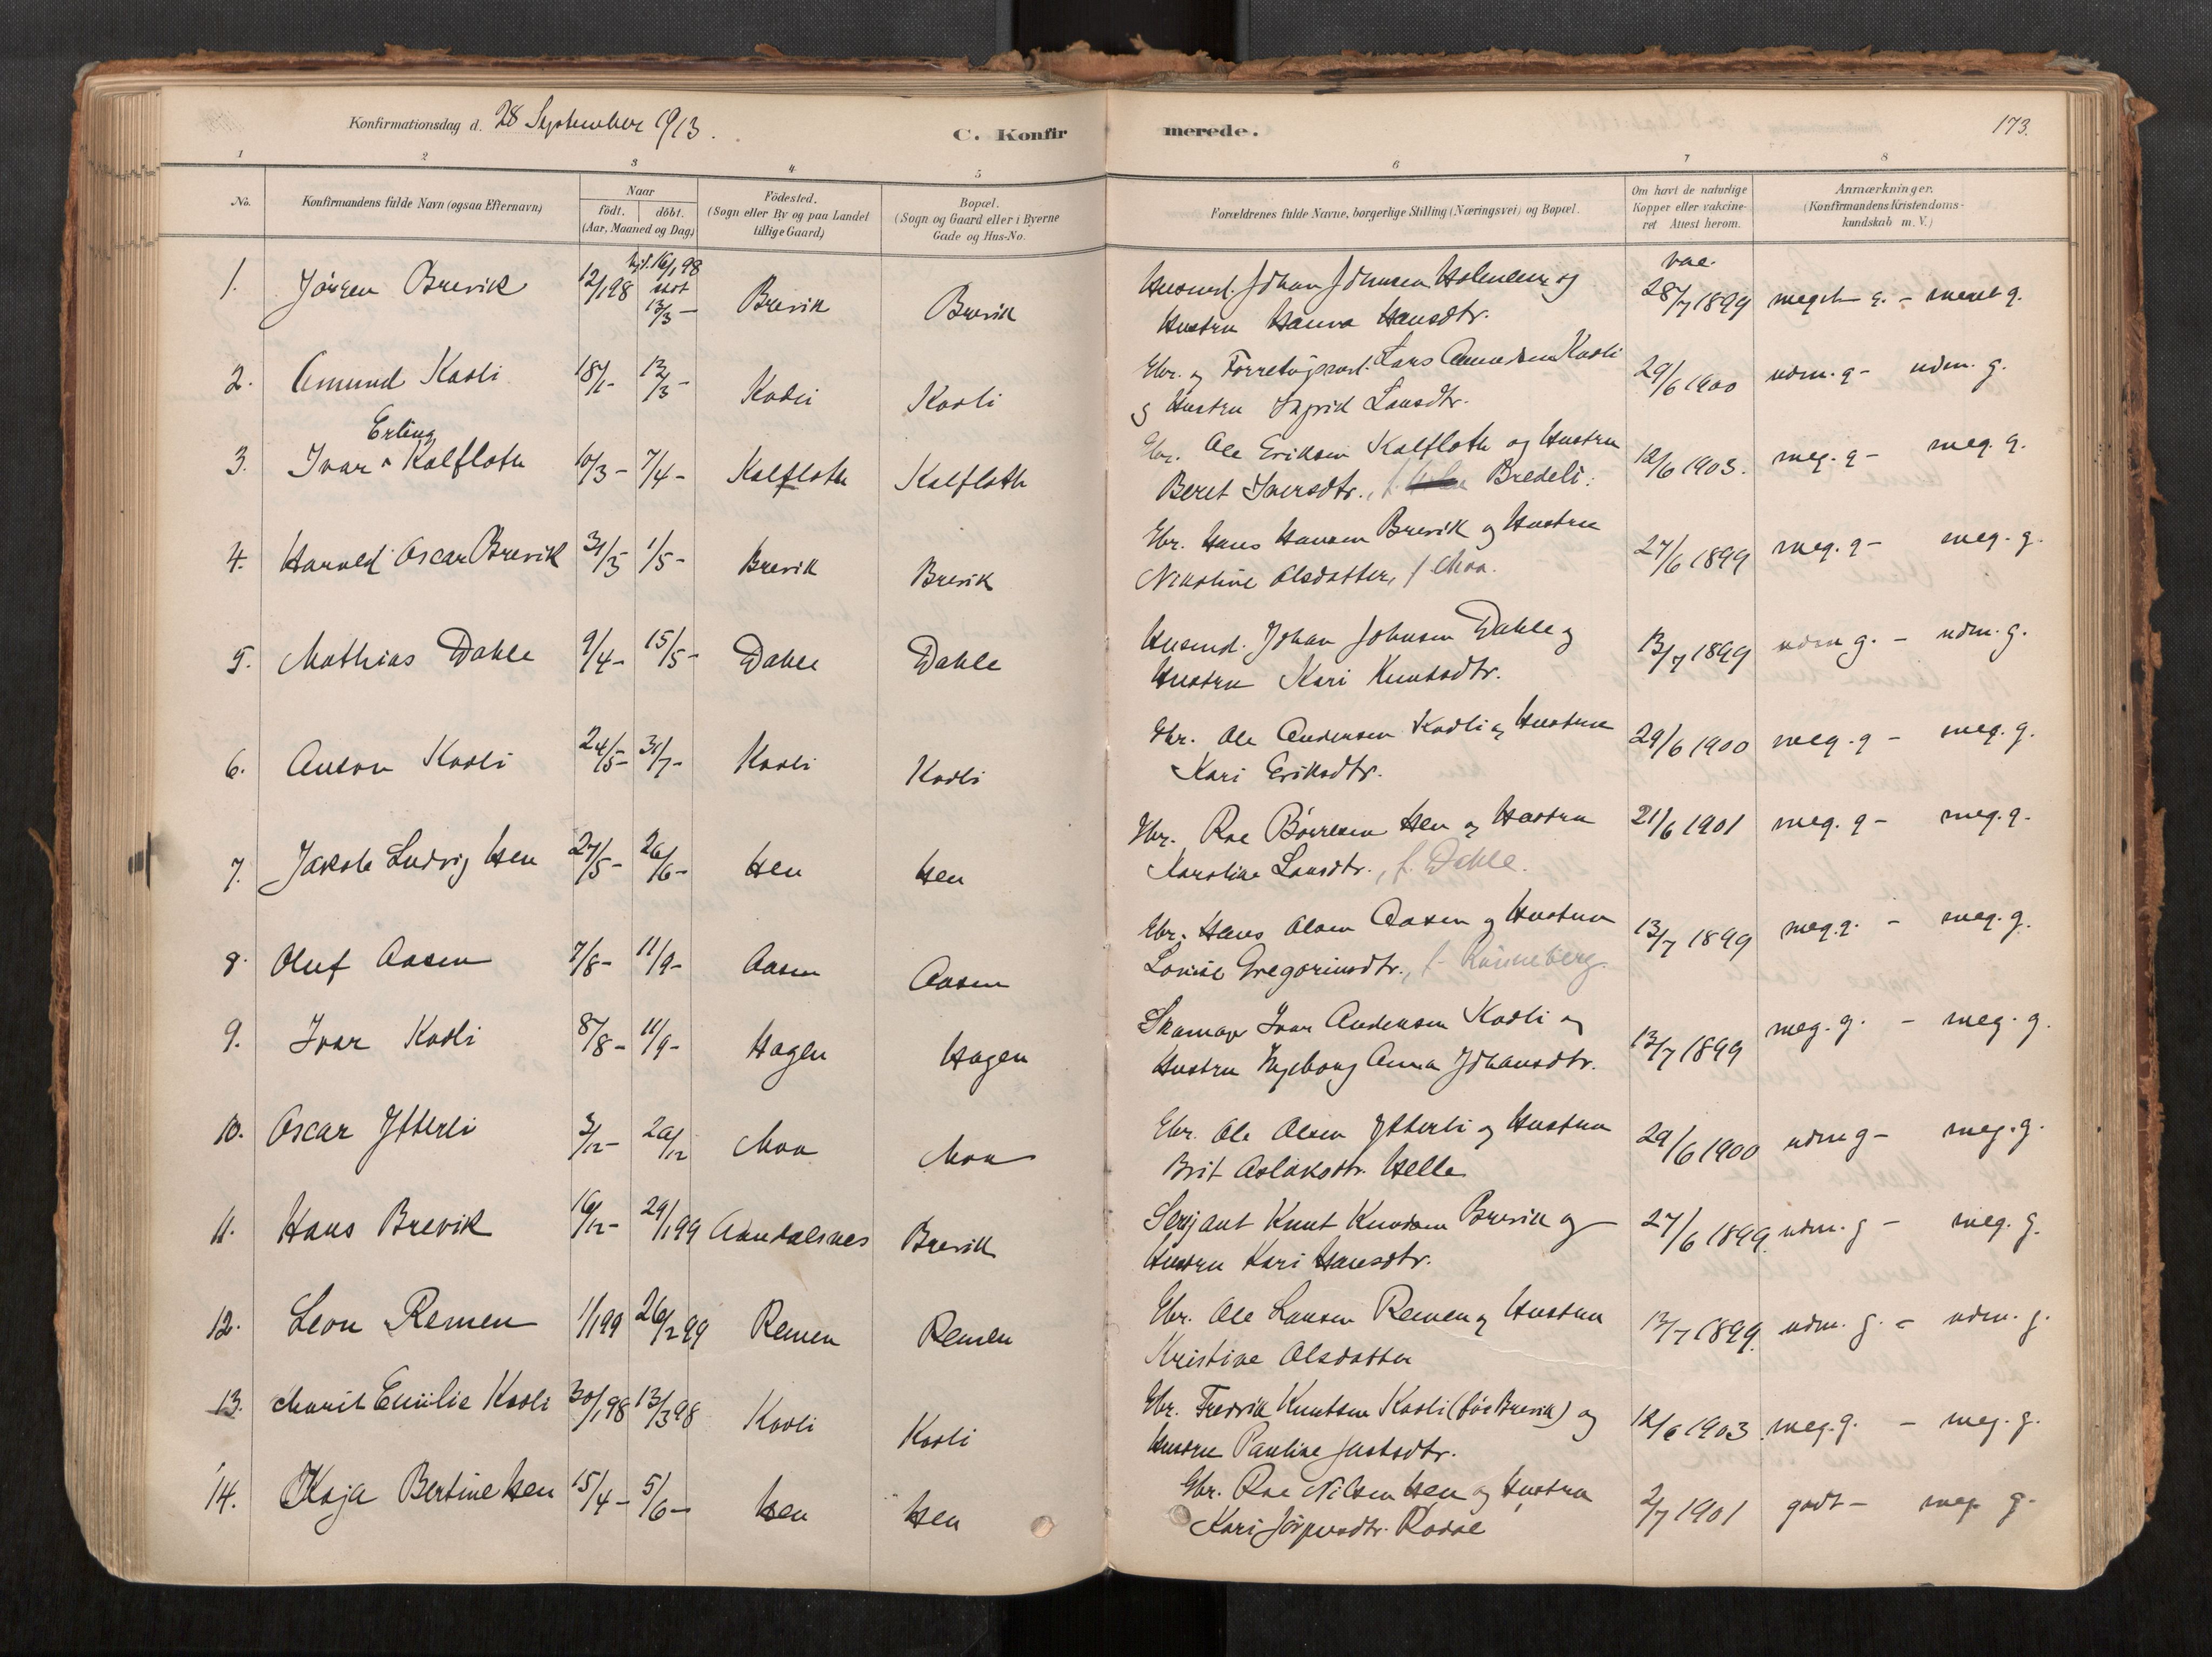 Konfirmationsdag d. 28 September 1913.
C. Konfirmerede.
173.
1 2 3 4 5 6 7 8
No.
Konfirmandens fulde Navn (ogsaa Efternavn)
Naar
födt. döbt.
(Aar, Maaned og Dag)
Födested.
(Sogn eller By og paa Landet
tillige Gaard)
Bopæl.
(Sogn og Gaard eller i Byerne
Gade og Hus-No.
Forældrenes fulde Navne, borgerlige Stilling (Næringsvei) og Bopæl.
Om havt de naturlige
Kopper eller vakcine-
ret Attest herom.
Anmærkninger.
(Konfirmandens Kristendoms-
kundskab m. V.)
1. Jörgen Brevik 12/1 98 hjd. 16/1 98 13/3 - Brevik Brevik
Husmd. Johan Johnsen Holmem og
Hustru Hanna Hansdtr.
vac. 28/7 1899 meget g. - meget g.
2. Amund Kavli 18/1 - 13/3 - Kavli Kavli
Gbr. og Forretngsmd. Lars Amundsen Kavli
og Hustru Ingrid Larsdtr.
29/6 1900 udm. g - udm. g.
3. Ivar Erling Kalfloth 10/3 - 7/4 - Kalfloth Kalfloth
Gbr. Ole Eriksen Kalfloth og Hustru
Beret Iversdtr., f. Bredeli.
12/6 1903. meg. g - meg. g.
4. Harald Oscar Brevik 31/3 1/5 - Brevik Brevik
Gbr. Hans Hansen Brevik og Hustru
Nikoline Olsdatter, f Moa.
27/6 1899 meg. g - meg. g.
5. Mathias Dahle 9/4 - 15/5 - Dahle Dahle
Husmd. Johan Johnsen Dahle og
Hustru Kari Knutsdtr.
13/7 1899 udm g. - udm. g.
6. Anton Kavli 24/5 - 31/7 - Kavli Kavli
Gbr. Ole Andersen Kavli og Hustru
Kari Eriksdtr.
29/6 1900 meg. g - meg. g.
7. Jakob Ludvig Hen 27/5 - 26/6 - Hen Hen
Gbr. Roe Börresen Hen og Hustru
Karoline Larsdtr., f. Dahle.
21/6 1901 meg. g - meg. g.
8. Oluf Aasen 7/8 - 11/9 - Aasen Aasen
Gbr. Hans Olsen Aasen og Hustru
Lovise Gregoriusdtr., f. Rönneberg.
13/7 1899 meg. g. - meg. g.
9. Ivar Kavli 8/8 - 11/9 - Hagen Hagen
Skomager Ivar Andersen Kavli og
Hustru Ingeborg Anna Johansdtr.
13/7 1899 meg. g. - meg. g.
10. Oscar Ytterli 3/12 - 20/12 Moa Moa
Gbr. Ole Olsen Ytterli og Hustru
Brit Aslaksdtr. Helle
29/6 1900 udm g - meg. g.
11. Hans Brevik 16/12 - 29/1 99 Aandalsnes Brevik
Serjant Knut Knudsen Brevik og
Hustru Kari Hansdtr.
27/6 1899. udm. g - meg. g.
12. Leon Remen 1/1 99 26/2 99 Remen Remen
Gbr. Ole Larsen Remen og Hustru
Kristine Olsdatter
13/7 1899. udm. g. - udm. g.
13. Marit Emilie Kavli 30/1 98 13/3 98 Kavli Kavli
Gbr. Fredrik Knutsen Kavli (för Brevik) og
Hustru Pauline Justsdtr.
12/6 1903 meg. g. - meg. g.
14. Kaja Bertine Hen 15/4 - 5/6 - Hen Hen
Gbr. Roe Nilsen Hen og Hustru
Kari Jörgensdtr. Rödal
2/7 1901 godt - meg. g.